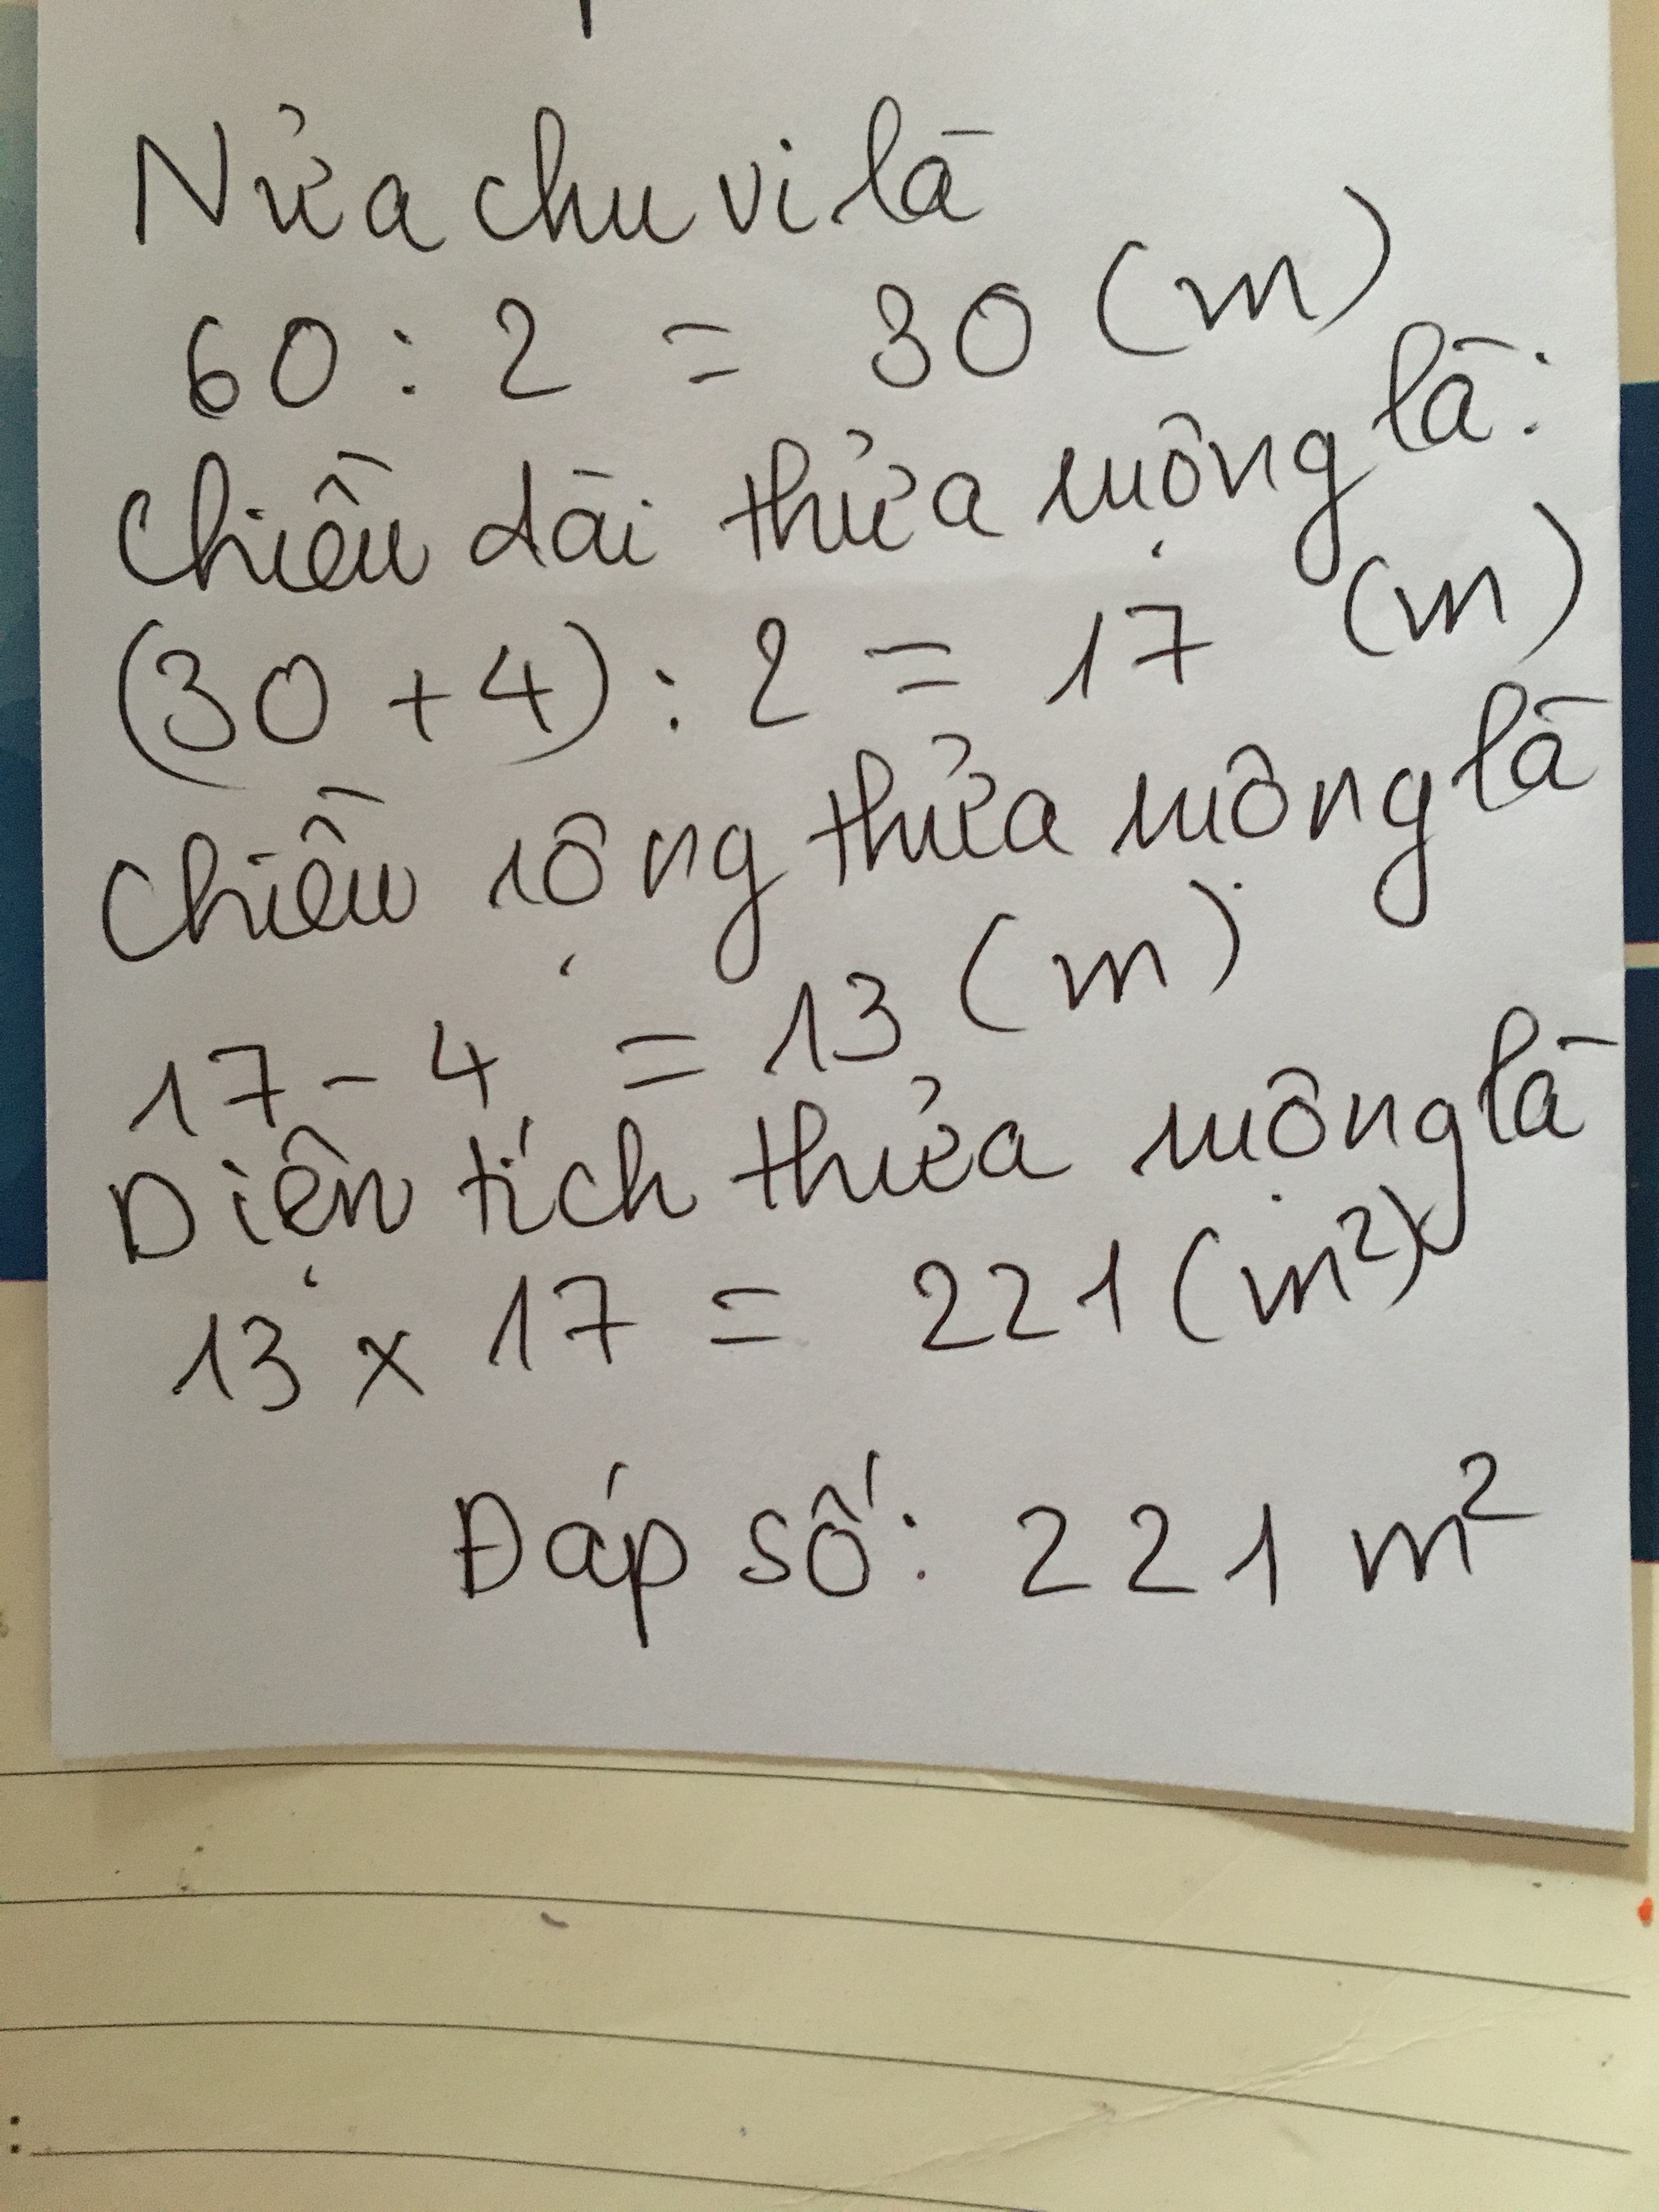 Nửa chu vi là
60 : 2 = 30 (m)
Chiều dài thửa ruộng là:
(30 + 4) : 2 = 17 (m)
Chiều rộng thửa ruộng là
17 - 4 = 13 (m)
Diện tích thửa ruộng là
13 x 17 = 221 (m²)
Đáp số: 221 m²